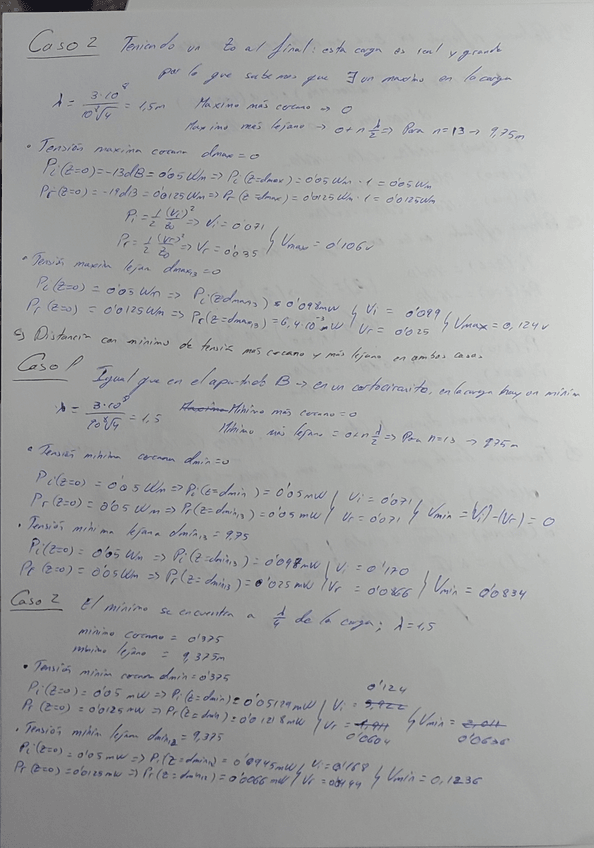 Caso 2 Teniendo un Zo al final: esta carga es real y grande
por lo que sabemos que ∃ un maximo en la carga
λ = 3·10⁸ / 10⁸√4 = 1,5m Maximo más cercano → 0
Maximo más lejano → 0 + n λ/2 => Para n=13 → 9,75m
• Tensión maxima cercana dmax=0
Pi(z=0) = -13dB = 0'05Wm => Pi(z=dmax) = 0'05Wm · 1 = 0'05Wm
Pr(z=0) = -19dB = 0'0125Wm => Pr(z=dmax) = 0'0125Wm · 1 = 0'0125Wm
Pi = 1/2 (Vi)²/Zo => Vi = 0'071
Pr = 1/2 (Vr)²/Zo => Vr = 0'035 } Vmax = 0'106v
• Tensión maxima lejana dmax13=0
Pi(z=0) = 0'05 Wm => Pi(zdmax13) = 0'098mW } Vi = 0'099
Pr(z=0) = 0'0125 Wm => Pr(z=dmax13) = 6,4·10⁻³ mW } Vr = 0'025 } Vmax = 0,124v
c) Distancia con minimo de tensión más cercano y más lejano en ambos casos
Caso 1 Igual que en el apartado B → en un cortocircuito, en la carga hay un minimo
λ = 3·10⁸ / 10⁸√4 = 1,5 Mínimo más cercano = 0
Mínimo más lejano = 0 + n λ/2 => Para n=13 → 9,75m
• Tensión minima cercana dmin=0
Pi(z=0) = 0'05 Wm => Pi(z=dmin) = 0'05mW } Vi = 0'071
Pr(z=0) = 0'05 Wm => Pr(z=dmin) = 0'05 mW } Vr = 0'071 } Vmin = |Vi|-|Vr| = 0
• Tensión minima lejana dmin13 = 9,75
Pi(z=0) = 0'05 Wm => Pi(z=dmin13) = 0'098mW } Vi = 0'170
Pr(z=0) = 0'05 Wm => Pr(z=dmin13) = 0'025 mW } Vr = 0'0866 } Vmin = 0'0834
Caso 2 El minimo se encuentra a λ/4 de la carga; λ=1,5
minimo cercano = 0'375
mínimo lejano = 9,375m
• Tensión minima cercana dmin=0'375 0'124
Pi(z=0) = 0'05 mW => Pi(z=dmin) = 0'05129mW } Vi =
Pr(z=0) = 0'0125 mW => Pr(z=dmin) = 0'01218mW } Vr = 0'0604 } Vmin = 0'0636
• Tensión minima lejana dmin12 = 9,375
Pi(z=0) = 0'05mW => Pi(z=dmin12) = 0'0945mW } Vi = 0'168
Pr(z=0) = 0'0125mW => Pr(z=dmin12) = 0'0066mW } Vr = 0'0444 } Vmin = 0,1236